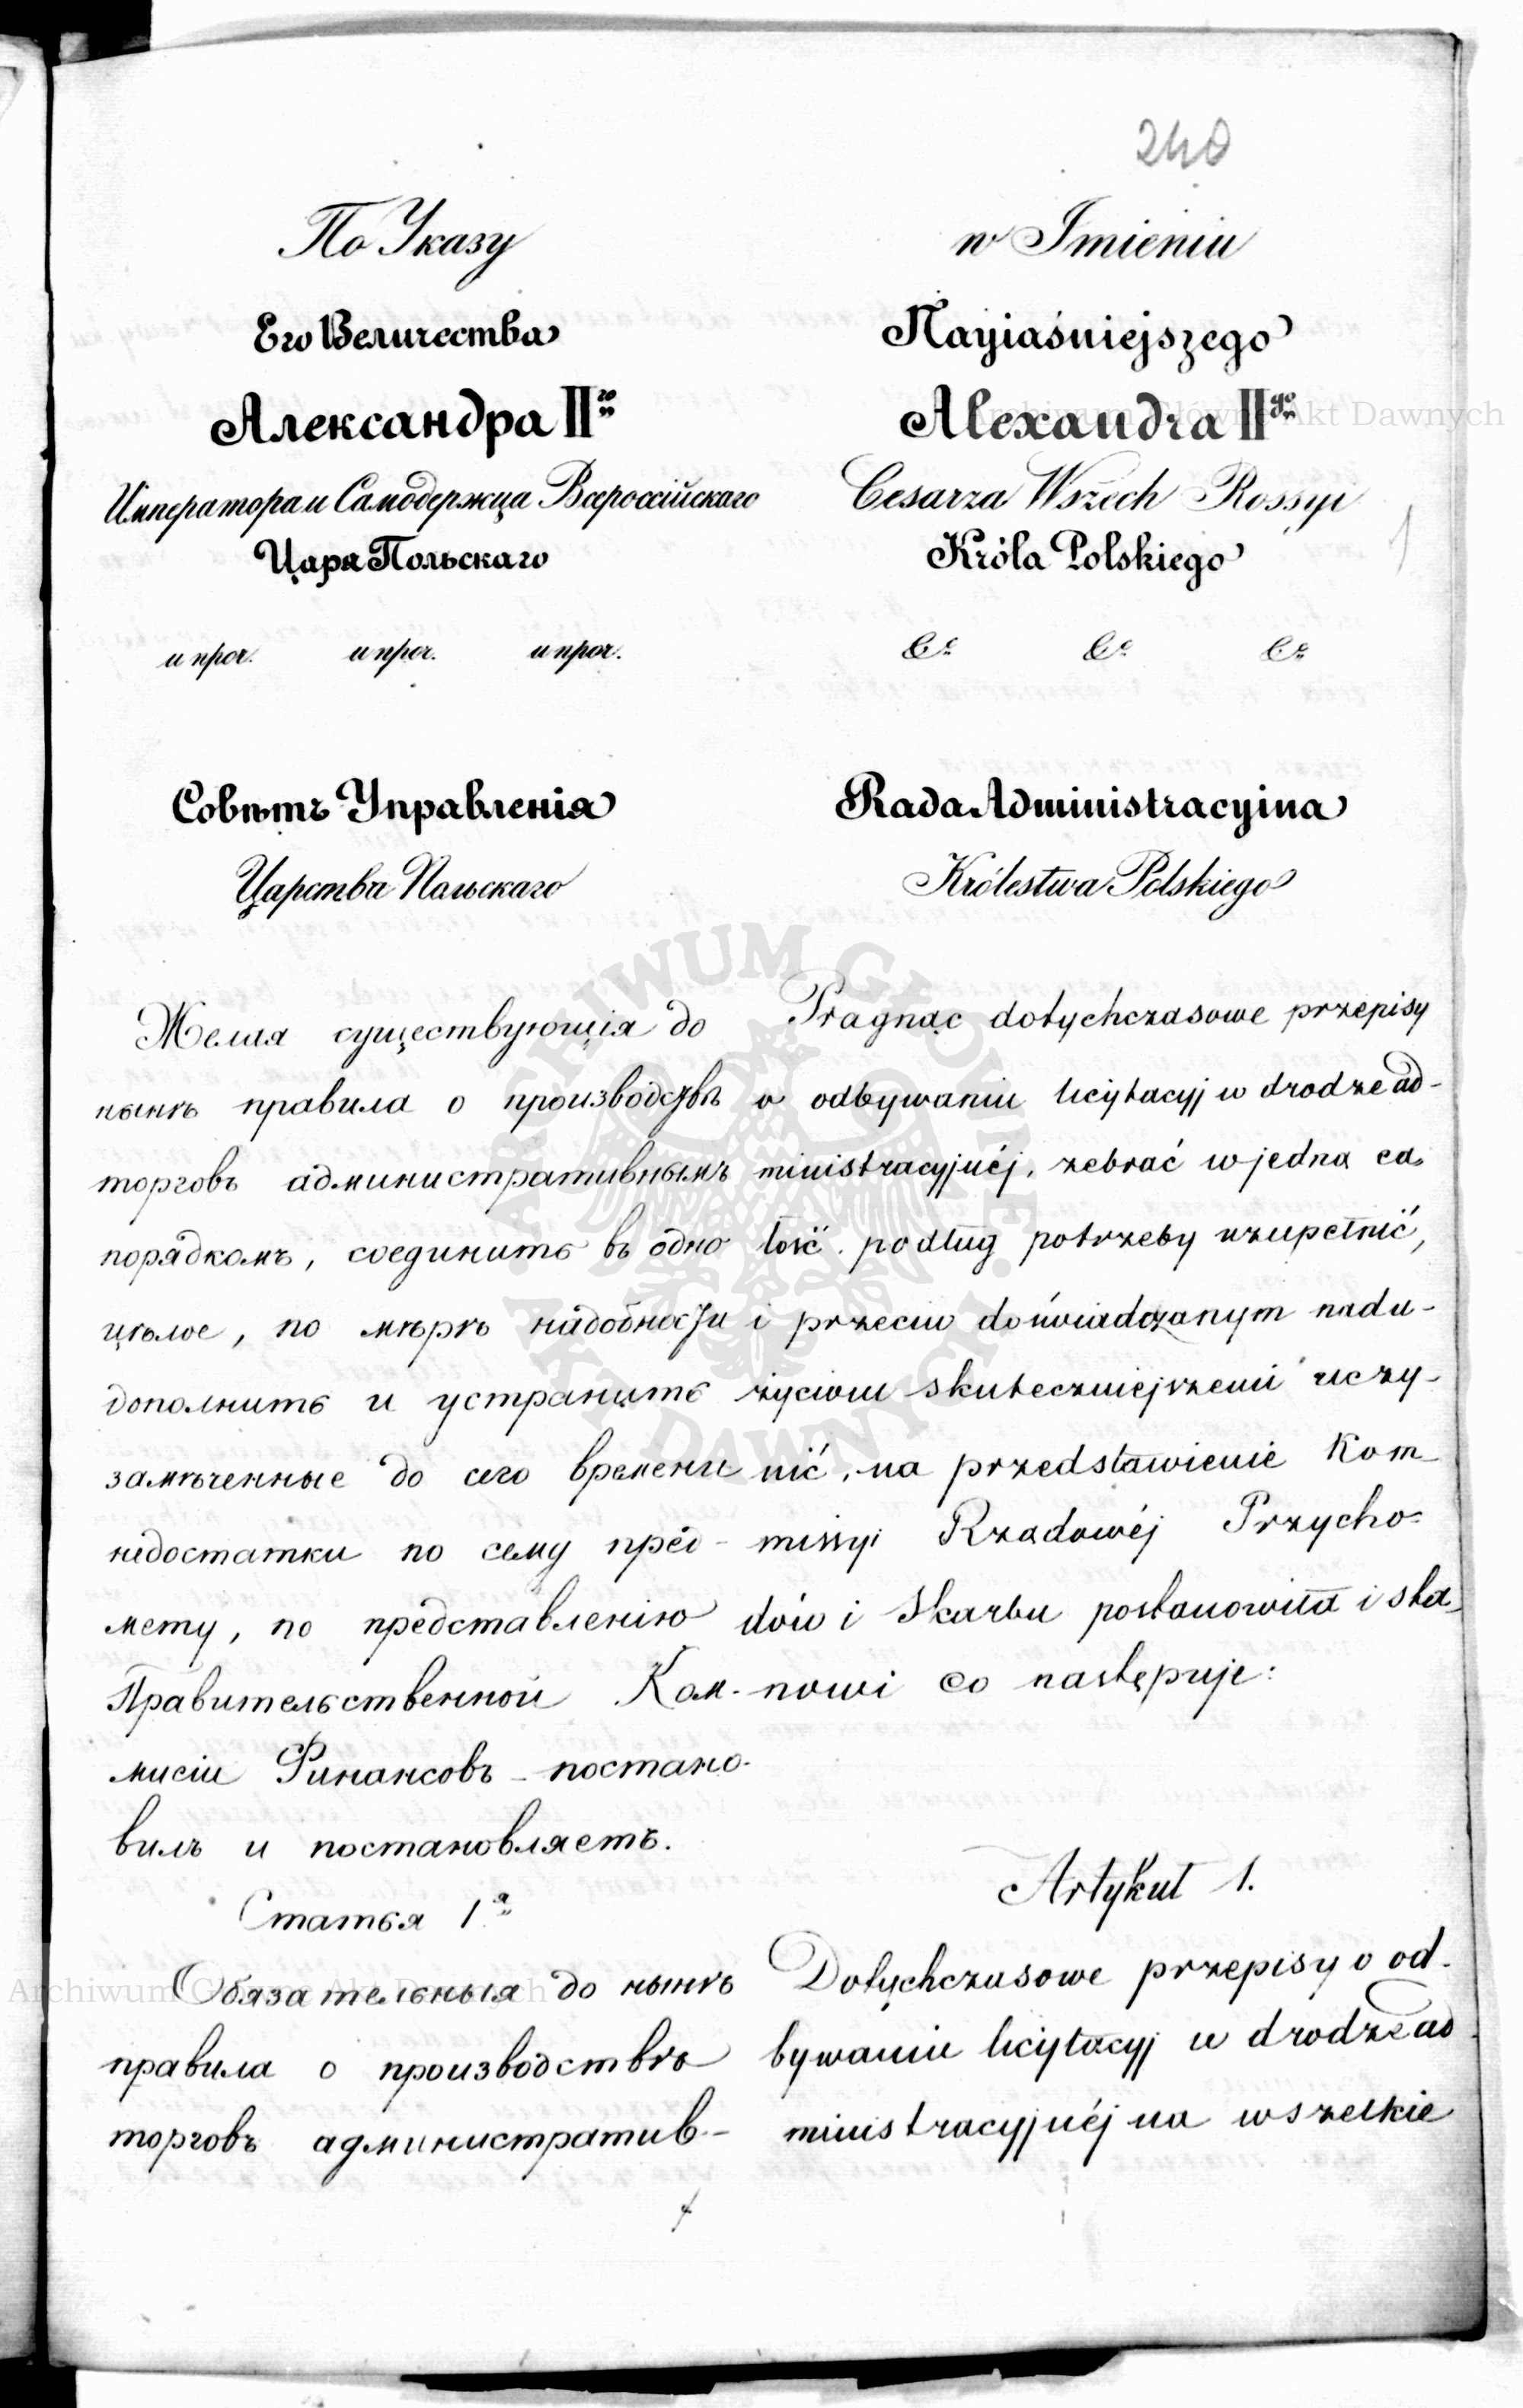 240
По Указу
Его Величества
Александра II го
Императора и Самодержца Всероссійскаго
Царя Польскаго
и проч. и проч. и проч.
Совѣтъ Управленія
Царства Польскаго
Желая существующія до
нынѣ правила о производствѣ
торговъ административнымъ
порядкомъ, соединить въ одно
цѣлое, по мѣрѣ надобности
дополнить и устранить
замѣченные до сего времени
недостатки по сему пред-
мету, по представленію
Правительственной Ком-
мисіи Финансовъ – постано-
вилъ и постановляетъ.
Статья 1 я
Обязательныя до нынѣ
правила о производствѣ
торговъ административ-
w Imieniu
Nayiaśniejszego
Alexandra II go
Cesarza Wszech Rossyi
Króla Polskiego
&c &c &c
Rada Administracyina
Królestwa Polskiego
Pragnąc dotychczasowe przepisy
o odbywaniu licytacyj w drodze ad-
ministracyjnéj, zebrać w jedną ca-
łość, podług potrzeby uzupełnić,
i przeciw doświadczanym nadu-
życiom skuteczniejszemi uczy-
nić, na przedstawienie Kom-
missyi Rządowéj Przycho-
dów i Skarbu postanowiła i sta-
nowi co następuje:
Artykuł 1.
Dotychczasowe przepisy o od-
bywaniu licytacyj w drodze ad-
ministracyjnéj na wszelkie
Archiwum Główne Akt Dawnych
ARCHIWUM GŁÓWNE AKT DAWNYCH
Archiwum Główne Akt Dawnych